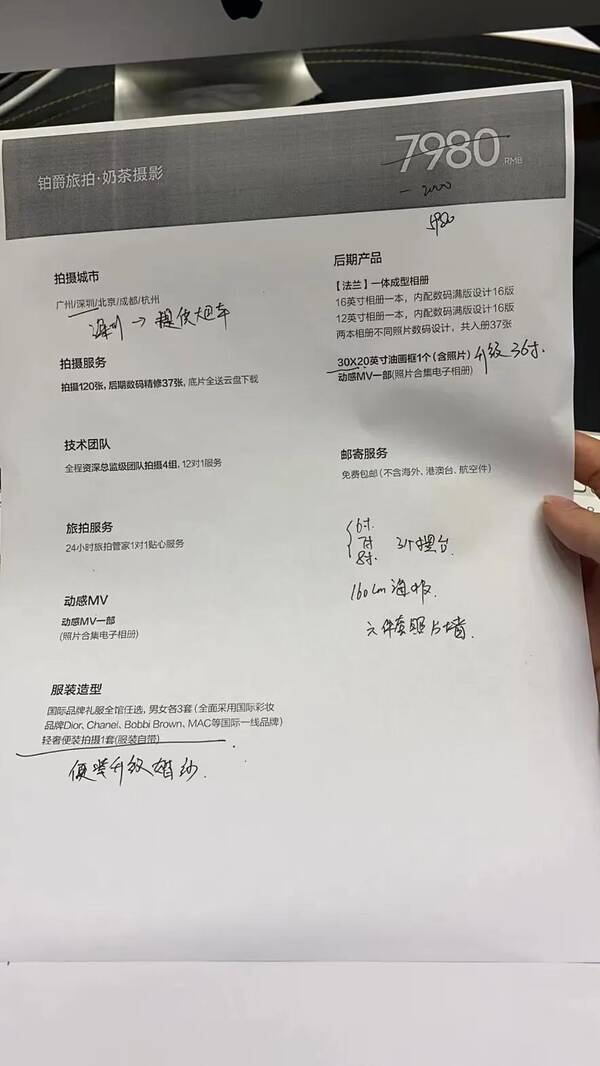 铂爵旅拍·奶茶摄影
7980 RMB
－2000
5980
拍摄城市
广州/深圳/北京/成都/杭州
深圳→提供大巴车
拍摄服务
拍摄120张,后期数码精修37张,底片全送云盘下载
技术团队
全程资深总监级团队拍摄4组,12对1服务
旅拍服务
24小时旅拍管家1对1贴心服务
动感MV
动感MV一部
(照片合集电子相册)
服装造型
国际品牌礼服全馆任选,男女各3套(全面采用国际彩妆
品牌Dior、Chanel、Bobbi Brown、MAC等国际一线品牌)
轻奢便装拍摄1套(服装自带)
便装升级婚纱.
后期产品
【法兰】一体成型相册
16英寸相册一本,内配数码满版设计16版
12英寸相册一本,内配数码满版设计16版
两本相册不同照片数码设计,共入册37张
30X20英寸油画框1个(含照片) 升级36寸.
动感MV一部(照片合集电子相册)
邮寄服务
免费包邮(不含海外、港澳台、航空件)
6寸
7寸
8寸
3个摆台.
160cm海报.
六件套照片墙.